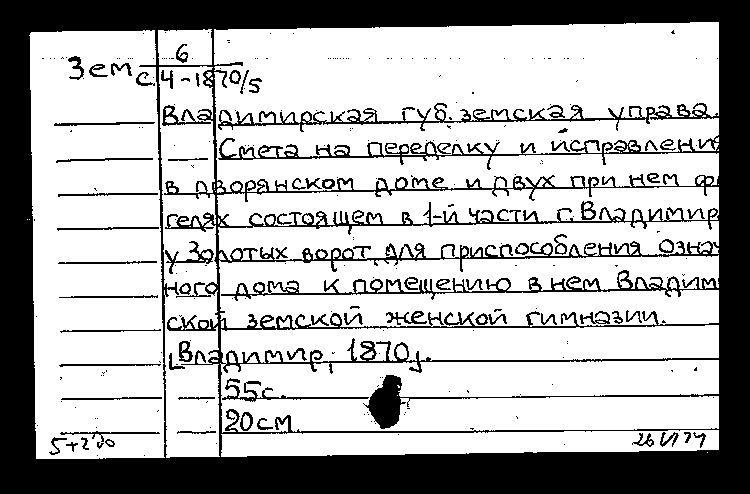 Зем 6
с.4-1870/5
Владимирская губ. земская управа.
Смета на переделку и исправление
в дворянском доме и двух при нем ф
гелях состоящем в 1-й части г. Владимир
у Золотых ворот, для приспособления означ
ного дома к помещению в нем Владим
ской земской женской гимназии.
[Владимир, 1870].
55с.
20см.
5+220